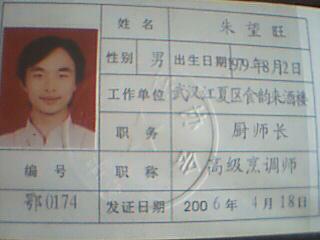 姓名 朱望旺
性别 男 出生日期 1979年8月2日
工作单位 武汉江夏区会韵来酒楼
职务 厨师长
编号 职称 高级烹调师
鄂0174 发证日期 2006年4月18日